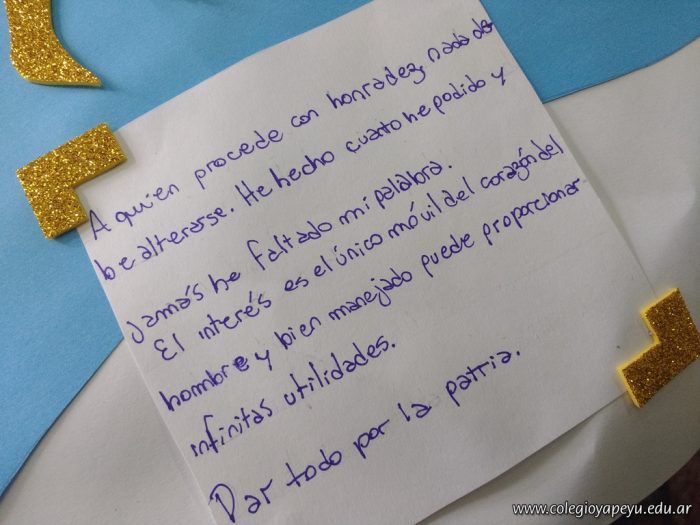 A quien procede con honradez, nada de
be alterarse. He hecho cuanto he podido y
Jamás he faltado mi palabra.
El interés es el único móvil del corazón del
hombre y bien manejado puede proporcionar
infinitas utilidades.
Dar todo por la patria.
www.colegioyapeyu.edu.ar